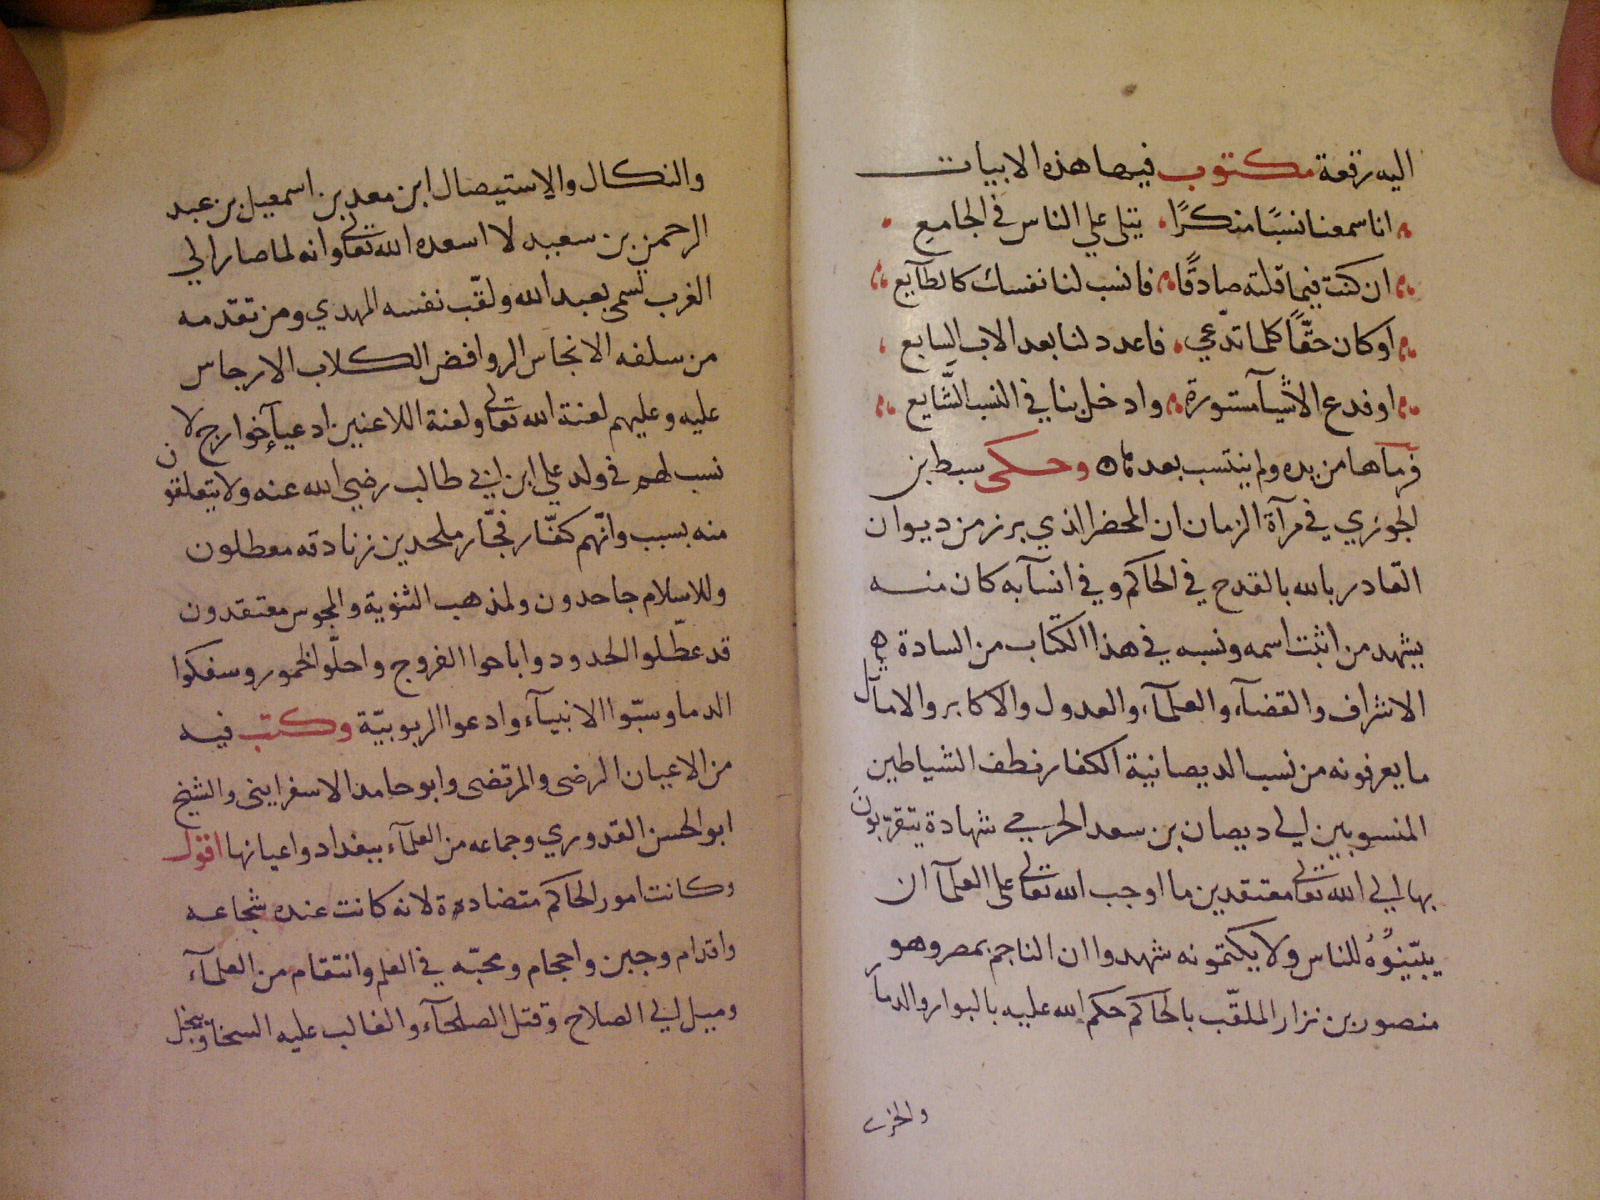 اليه رقعة مكتوب فيها هذه الابيات
انا سمعنا نسبًا منكرًا يتلى علي الناس في الجامع
ان كنت فيما قلته صادقًا فانسب لنا نفسك كالطآيع
او كان حقًّا كلما تدّعي فاعدد لنا بعد الاب السابع
او فدع الاشيآ مستورة وادخل بنا في النسب الشّايع
فرماها من يده ولم ينتسب بعدها وحكى سبط بن
الجوزي في مرآة الزمان ان المحضر الذي برز من ديوان
القادر بالله بالقدح في الحاكم وفي انسآبه كان منه
يشهد من اثبت اسمه ونسبه في هذا الكتاب من السادة
الاشراف والقضآء والعلمآء والعدول والاكابر والاماثل
ما يعرفونه من نسب الديصانية الكفار نطف الشياطين
المنسوبين الي ديصان بن سعد الخرمي شهادة يتقربون
بها الي الله تعالى معتقدين ما اوجب الله تعالى على العلمآ ان
يبيّنوُهُ للناس ولا يكتمونه شهدوا ان الناجم بمصر وهو
منصور بن نزار الملقّب بالحاكم حكم الله عليه بالبوار والدمار
والخزى
والنكال والاستيصال ابن معد بن اسمعيل بن عبد
الرحمن بن سعيد لا اسعده الله تعالى وانه لما صار الي
الغرب تسمى بعبد الله ولقّب نفسه المهدي ومن تقدّمه
من سلفه الانجاس الروافض الكلاب الارجاس
عليه وعليهم لعنة الله تعالى ولعنة اللاعنين ادعيآ خوارج لا
نسب لهم في ولد علي ابن ابي طالب رضي الله عنه ولا يتعلقون
منه بسبب وانّهم كفّار فجّار ملحدين زنادقه معطلون
وللاسلام جاحدون ولمذهب الثنوية والمجوس معتقدون
قد عطّلوا الحدود واباحوا الفروج واحلّوا الخمور وسفكوا
الدما وسبّوا الانبيآء وادعوا الربوبيّة وكتب فيه
من الاعيان الرضى والمرتضى وابو حامد الاسفرايني والشيخ
ابو الحسن القدوري وجماعه من العلمآء ببغداد واعيانها اقول
وكانت امور الحاكم متضادة لانه كانت عنده شجاعه
واقدام وجبن واحجام ومحبّه في العلم وانتقام من العلمآء
وميل الي الصلاح وقتل الصلحآء والغالب عليه السخا وبخل